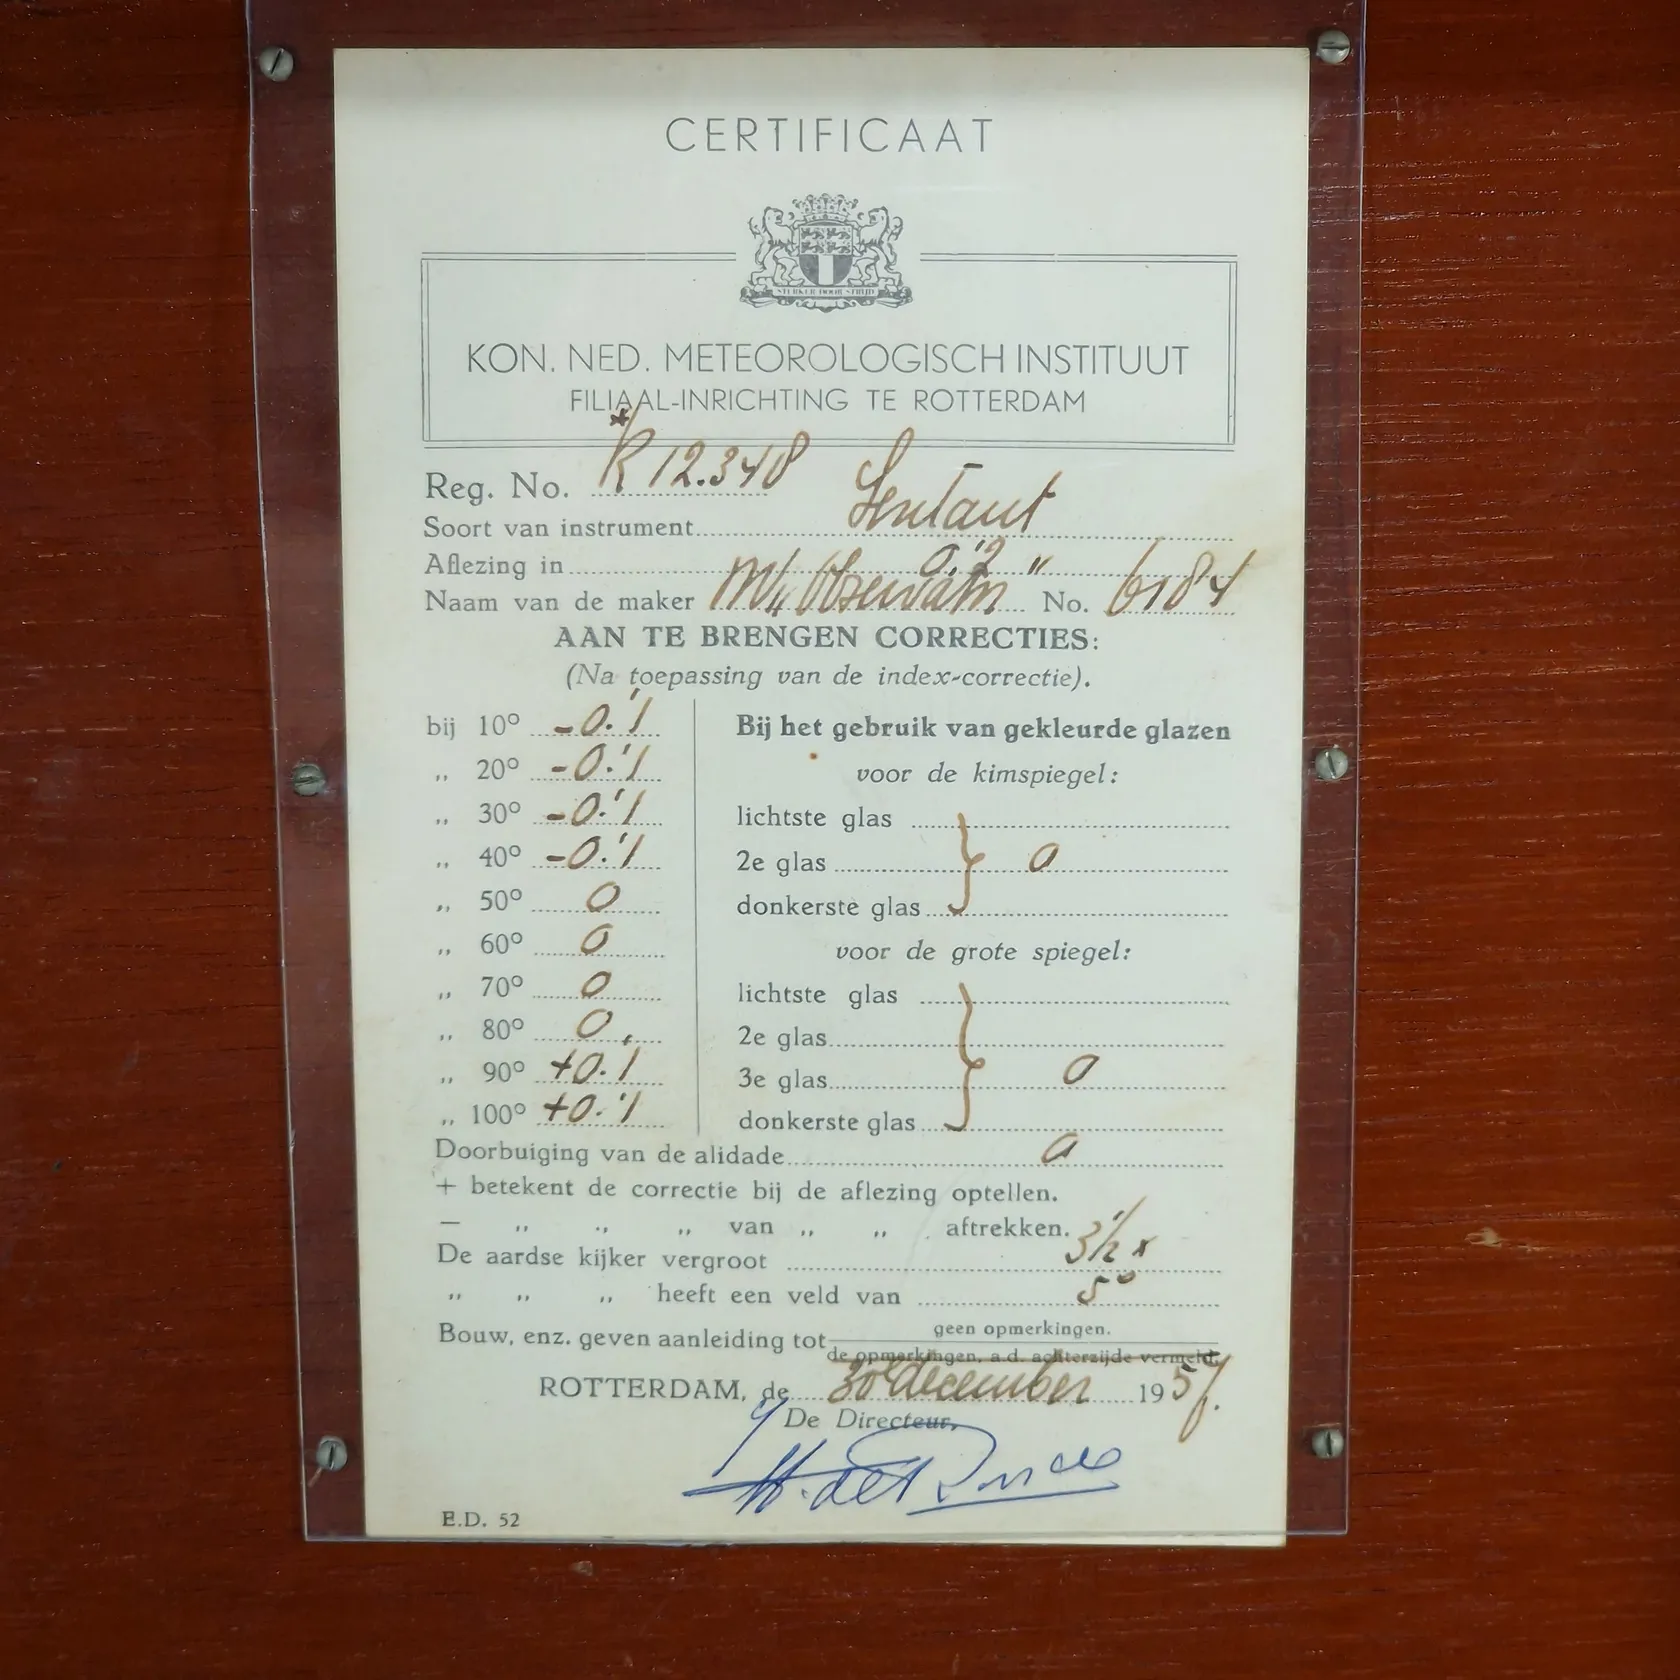 CERTIFICAAT
STERKER DOOR STRIJD
KON. NED. METEOROLOGISCH INSTITUUT
FILIAAL-INRICHTING TE ROTTERDAM
Reg. No. R 12.348
Soort van instrument Sextant
Aflezing in 0.'2
Naam van de maker No. 6184
AAN TE BRENGEN CORRECTIES:
(Na toepassing van de index-correctie).
bij 10° -0.'1
„ 20° -0.'1
„ 30° -0.'1
„ 40° -0.'1
„ 50° 0
„ 60° 0
„ 70° 0
„ 80° 0
„ 90° +0.'1
„ 100° +0.'1
Bij het gebruik van gekleurde glazen
voor de kimspiegel:
lichtste glas
2e glas } 0
donkerste glas
voor de grote spiegel:
lichtste glas
2e glas
3e glas } 0
donkerste glas
Doorbuiging van de alidade 0
+ betekent de correctie bij de aflezing optellen.
— „ „ „ van „ „ aftrekken.
De aardse kijker vergroot 3 1/2 x
„ „ „ heeft een veld van 5°
Bouw, enz. geven aanleiding tot geen opmerkingen.
de opmerkingen, a.d. achterzijde vermeld.
ROTTERDAM, de 30 december 1957.
De Directeur,
E.D. 52